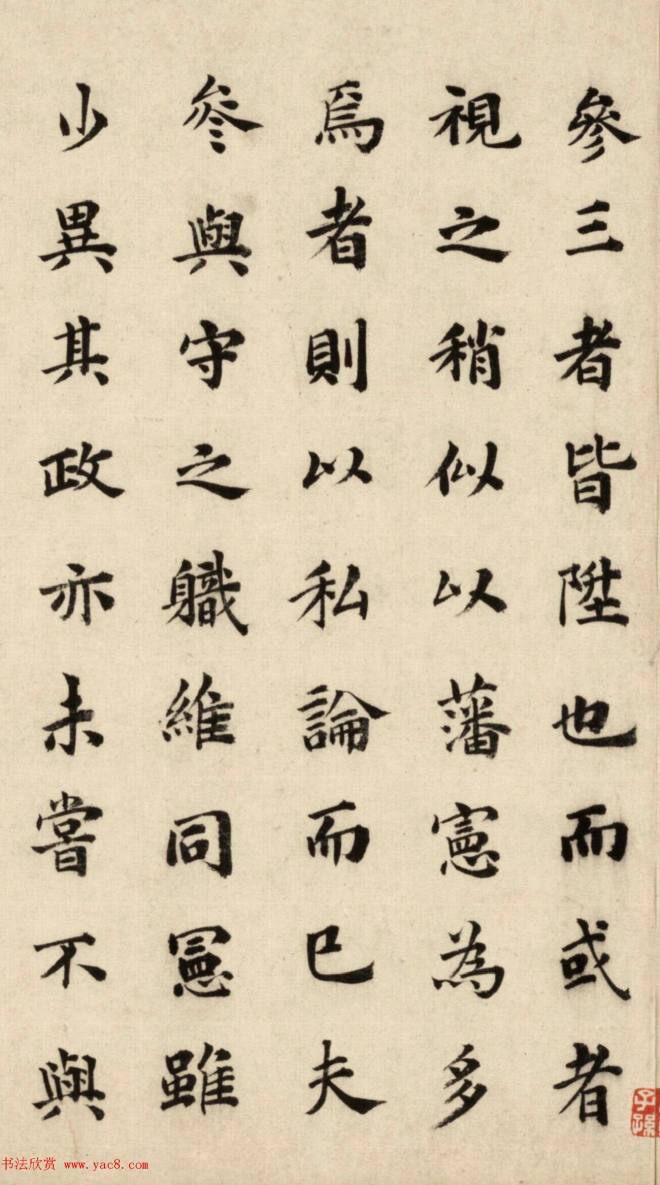 參三者皆陞也而或者
視之稍似以藩憲為多
焉者則以私論而已夫
參與守之職維同憲雖
少異其政亦未嘗不與
子孫
书法欣赏 www.yac8.com